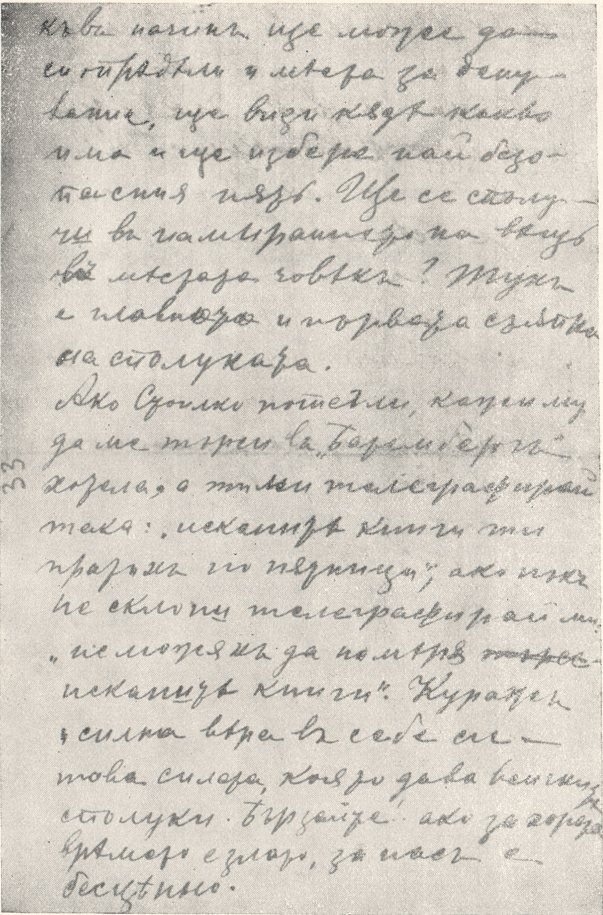 къвъ начинъ ще може да
си опрѣдѣли и мѣста за дену-
вание, ще види кядѣ какво
има и ще избере най безо-
пасния пять. Ще се сполу-
чи въ намиранието на вещъ
въ мѣстата човѣкъ? Тукъ
е главната и първата смѣтка
на сполуката.
Ако Стоилко потегли, кажи му
да ме търси въ „Барембергъ"
хотела, а ти ми телеграфирай
така: „исканитѣ книги ти
пратихъ по пядница", ако пъкъ
не склони телеграфирай ми:
„не можяхъ да намѣря
исканитѣ книги". Куражъ
и силна вѣра въ себе си —
това силата, която дава всички
сполуки. Бързайте! ако за хората
врѣмето е злато, за насъ е
бесцѣнно.
33